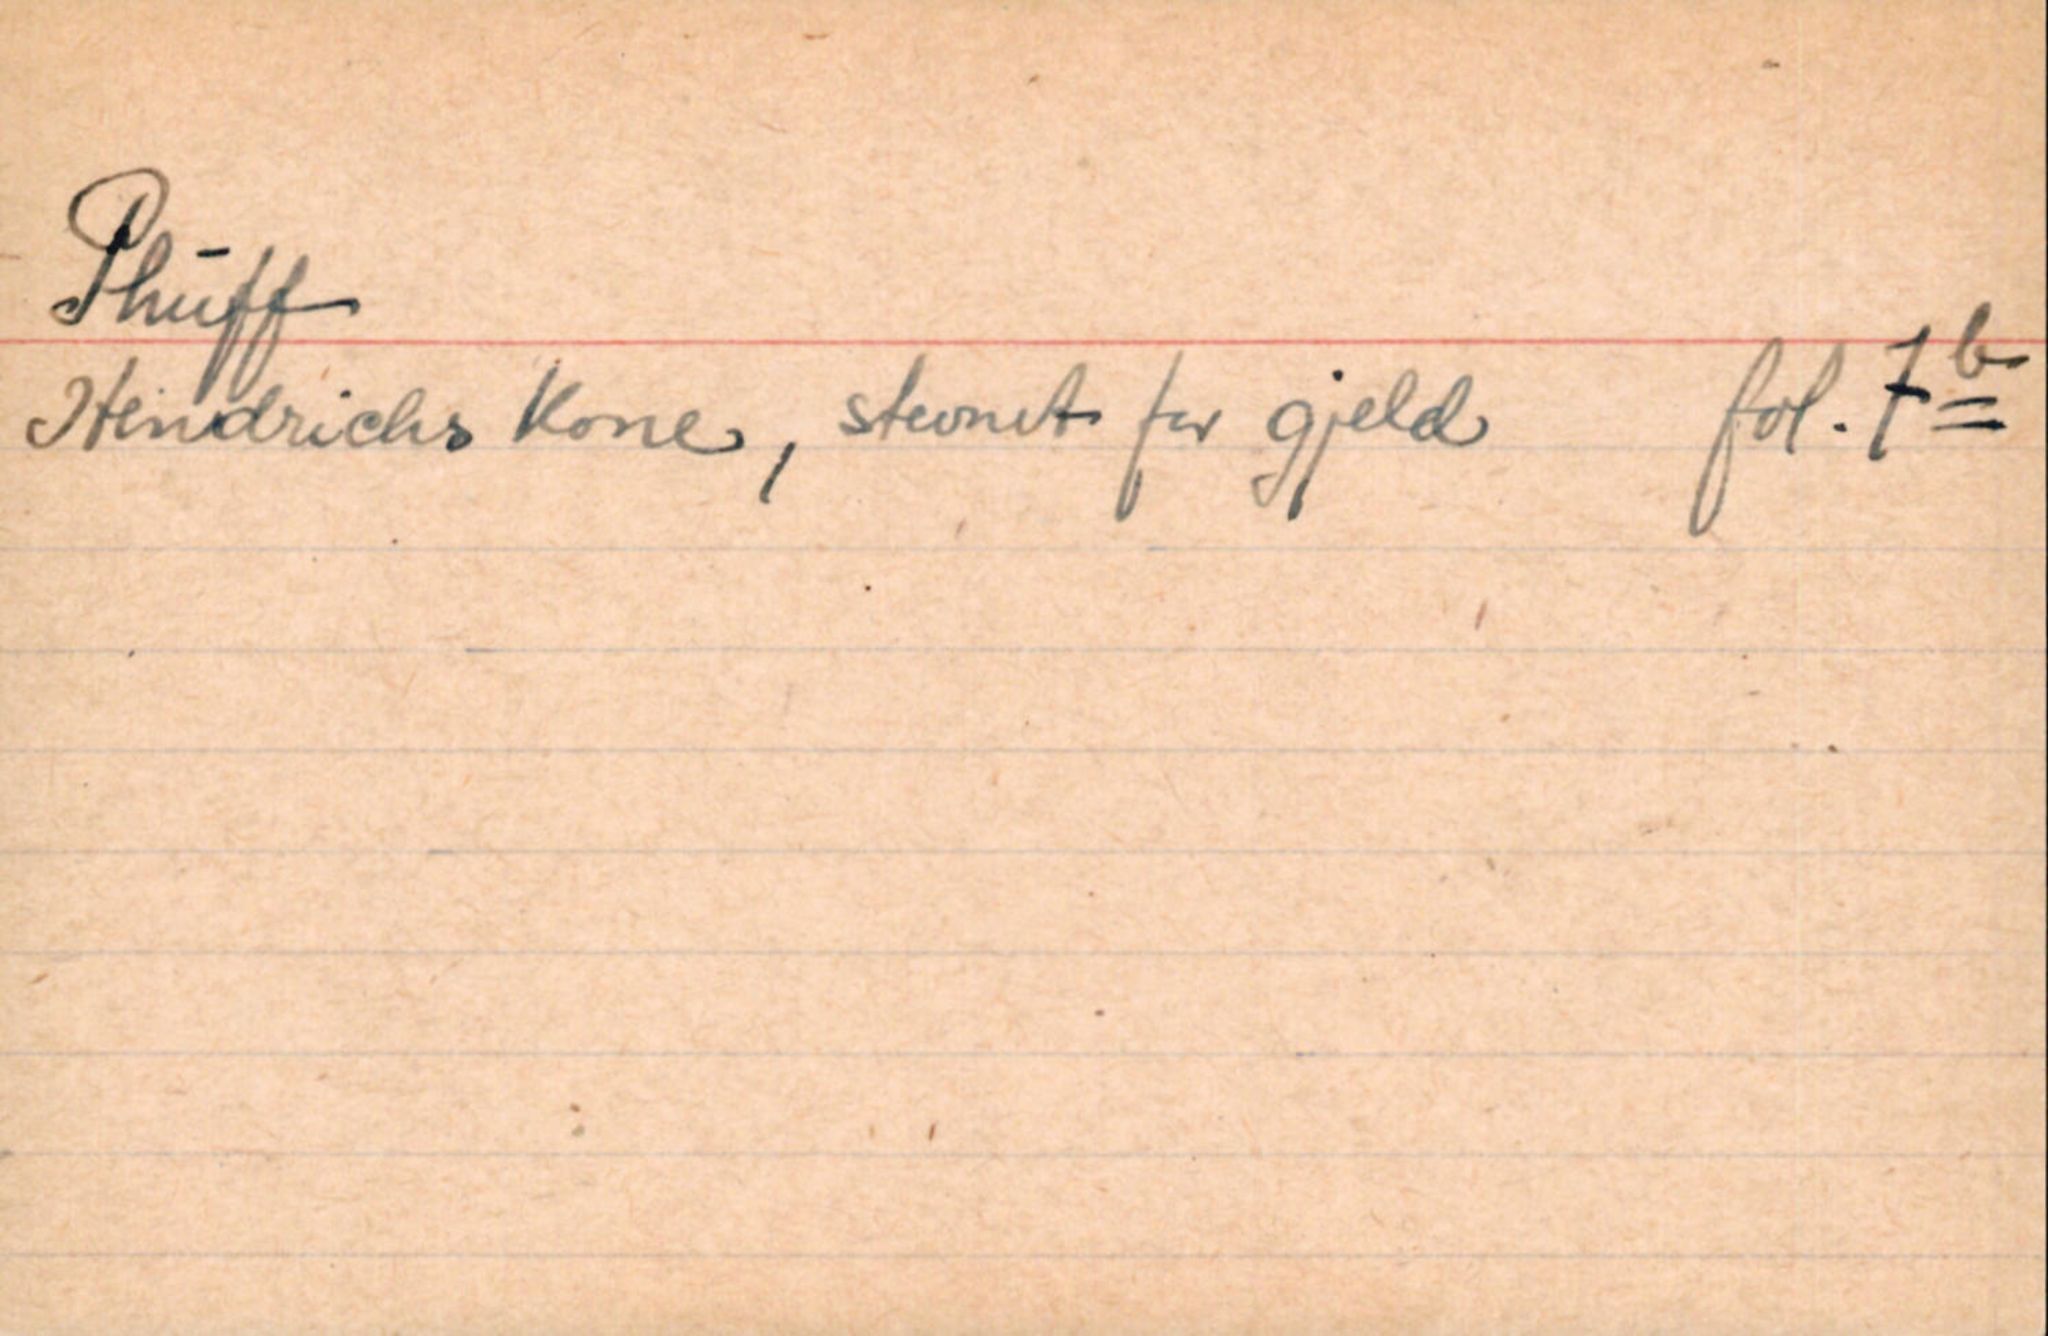 Phūff
Hendrichs Kone, stevnet for gjeld fol. 7b